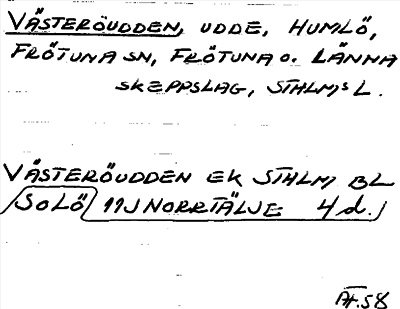 VÄSTERÖUDDEN, UDDE, HUMLÖ,
FRÖTUNA SN, FRÖTUNA O. LÄNNA
SKEPPSLAG, STHLMS L.
VÄSTERÖUDDEN EK STHLM BL
SOLÖ 11J NORRTÄLJE 4d.
AF.58